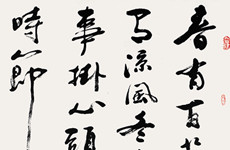 春有百花
有涼風冬
事掛心頭
時節